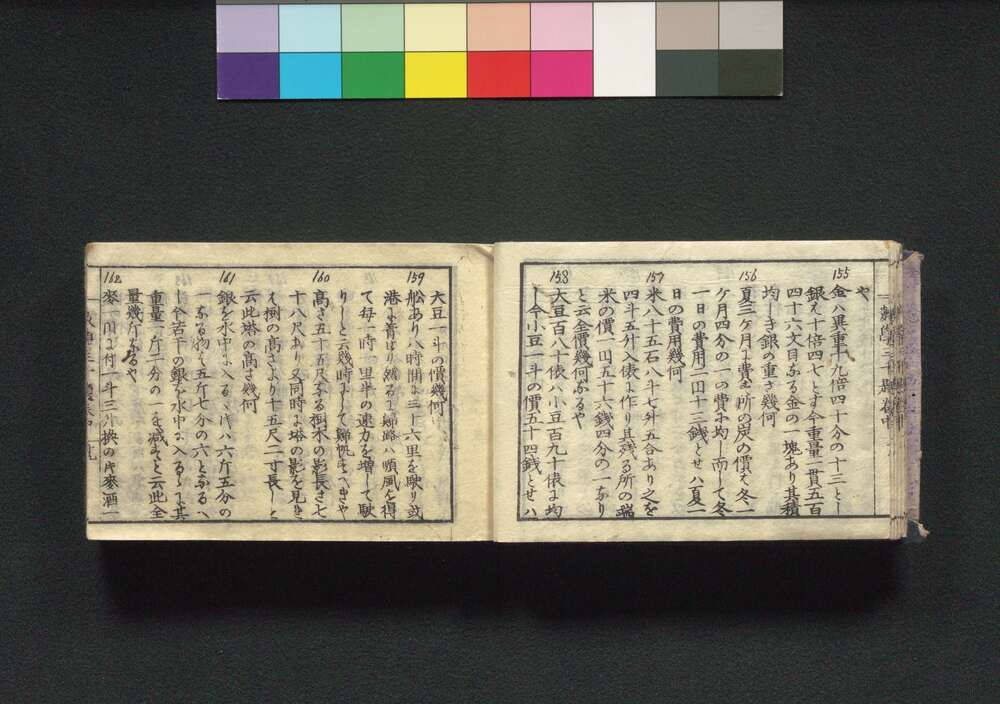 や
155
金ハ異重十九倍四十分の十三とし
銀え十倍四七とす今重量一貫五百
四十六文目なる金の一塊あり其積
均しき銀の重さ幾何
156
夏三ヶ月に費す所の炭の價え冬一
ヶ月四分の一の費に均し而して冬
一日の費用二円十三錢とせハ夏一
日の費用幾何
157
米八十五石八斗七升五合あり之を
四斗五升入俵に作り其残る所の端
米の價一円五十六錢四分の一なり
と云全價幾何なるや
158
大豆百八十俵ハ小豆百九十俵に均
し今小豆一斗の價五十四錢とせハ
大豆一斗の價幾何
159
舩あり八時間に三十六里を駛り或
港に着せり
て毎一時一里半の速力を増して駛
りしと云幾時にして歸帆すへきや
160
高さ五十五尺なる樹木の影長さ七
十八尺あり又同時に塔の影を見るに
樹の高さより十五尺二寸長しと
云此塔の高さ幾何
161
銀を水中に入るゝ片ハ六斤五分の
一なる物も五斤七分の六となるへ
し今若干の銀を水中に入るゝに其
重量一斤二分の一を減すと云此全
量幾斤なるや
162
麥一円に付一斗三升換の片麥酒一